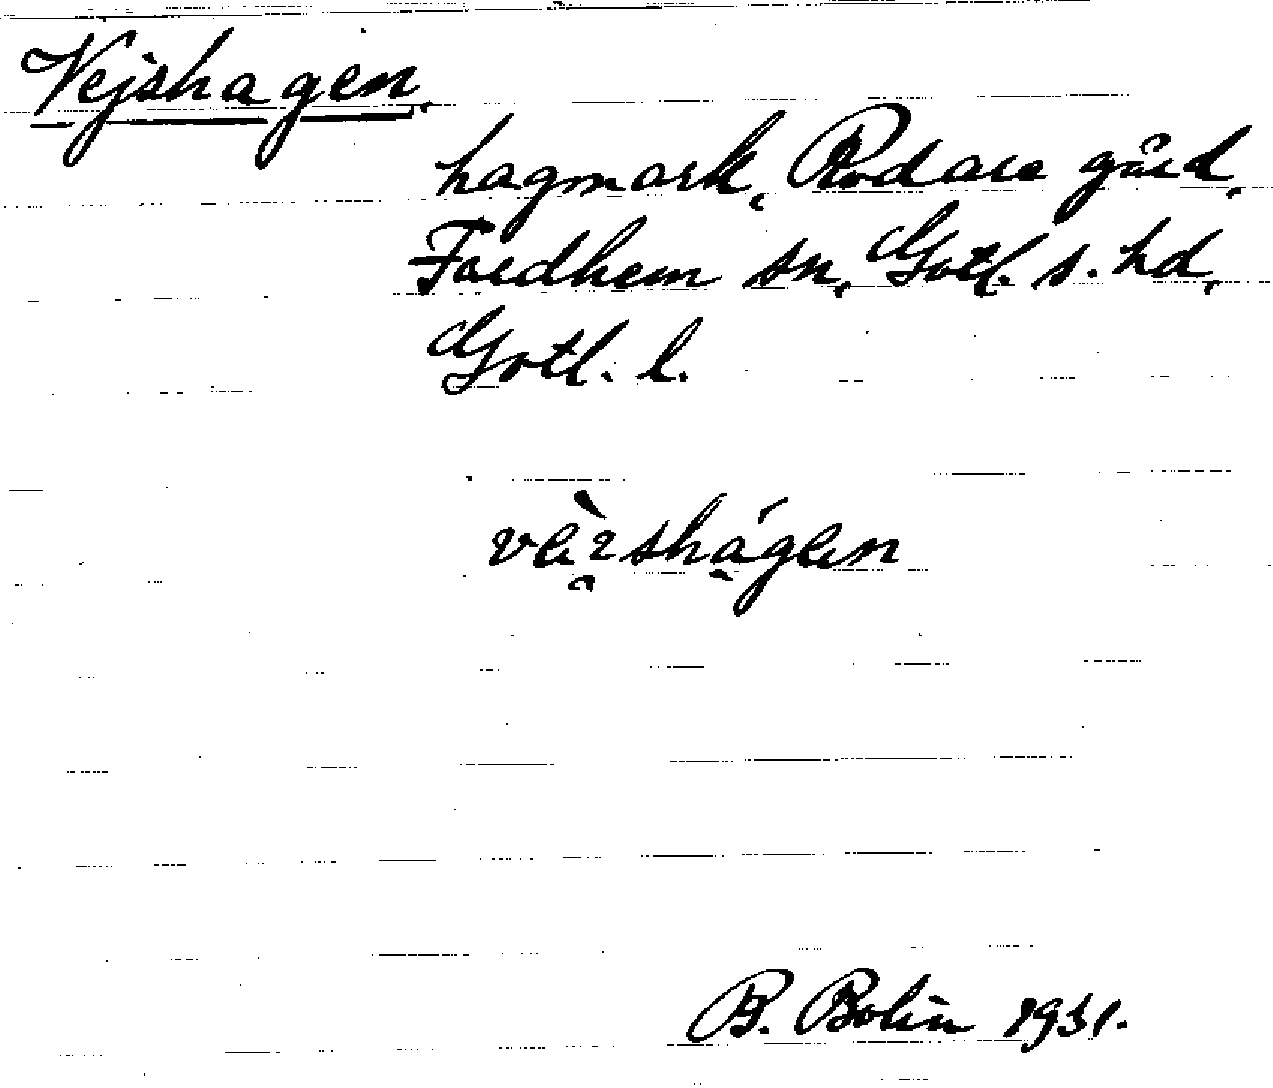 Vejshagen,
hagmark, Rodare gård,
Fardhem sn, Gotl. s. hd,
Gotl. l.
B. Bolin 1931.